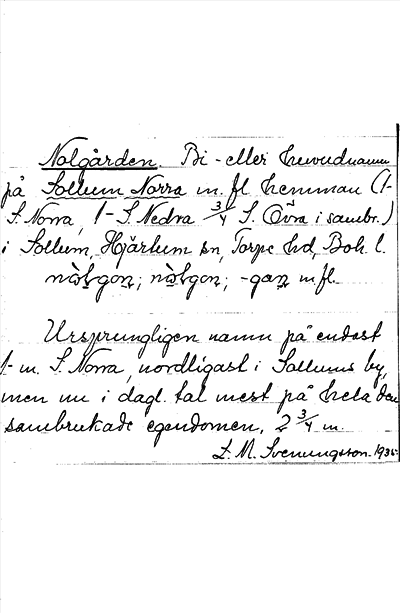 Nolgården. Bi- eller huvudnamn
på Sollum Norra m.fl. hemman (1-
S. Norra, 1- S. Nedra 3/4 S. Övra i sambr.)
i Sollum, Hjärtum sn, Torpe hd, Boh. l.
nòlgon; nòlgon; -gan m fl.
Ursprungligen namn på endast
1- m. S. Norra, nordligast i Sollums by,
men nu i dagl. tal mest på hela den
sambrukade egendomen, 2 3/4 m.
E. M. Svenungsson. 1935